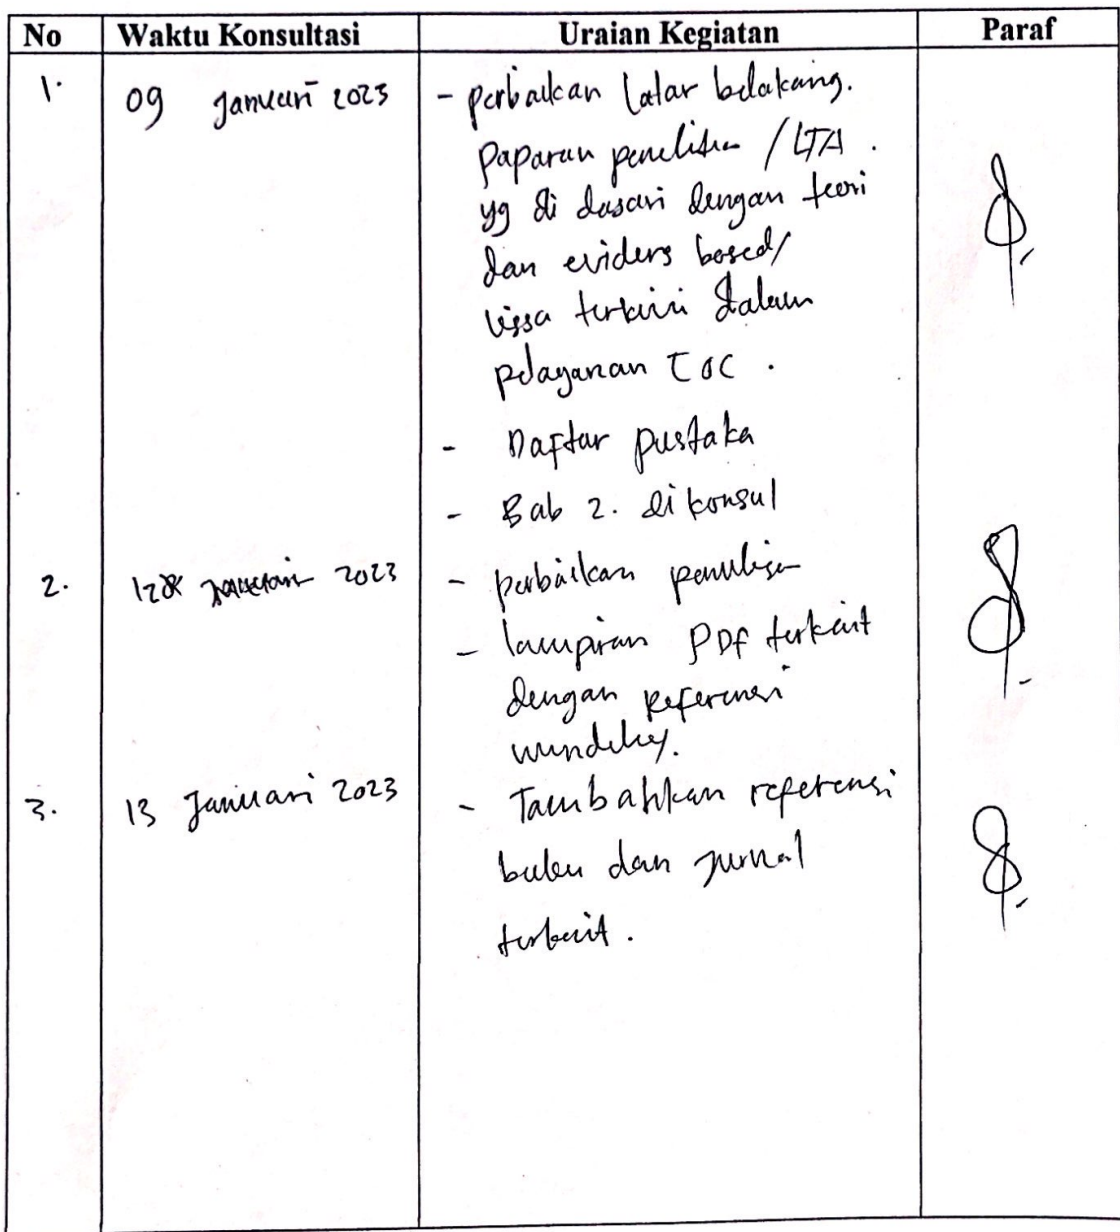 No Waktu Konsultasi Uraian Kegiatan Paraf
1. 09 Januari 2023 - perbaikan latar belakang.
paparan penelitian / LTA .
yg di dasari dengan teori
dan evidens based/
terkini dalam
pelayanan COC .
- Daftar pustaka
- Bab 2. di konsul
2. Januari 2023 - perbaikan penulisan
- lampiran PDF terkait
dengan referensi
3. 13 Januari 2023 - Tambahkan referensi
buku dan jurnal
terkait .